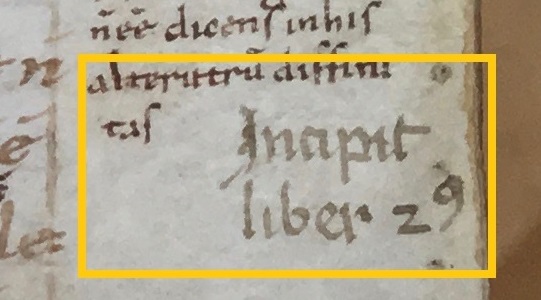 n̄eē dicens̄ in his
alterutrū diffini
tas
Incipit
liber 2⁹